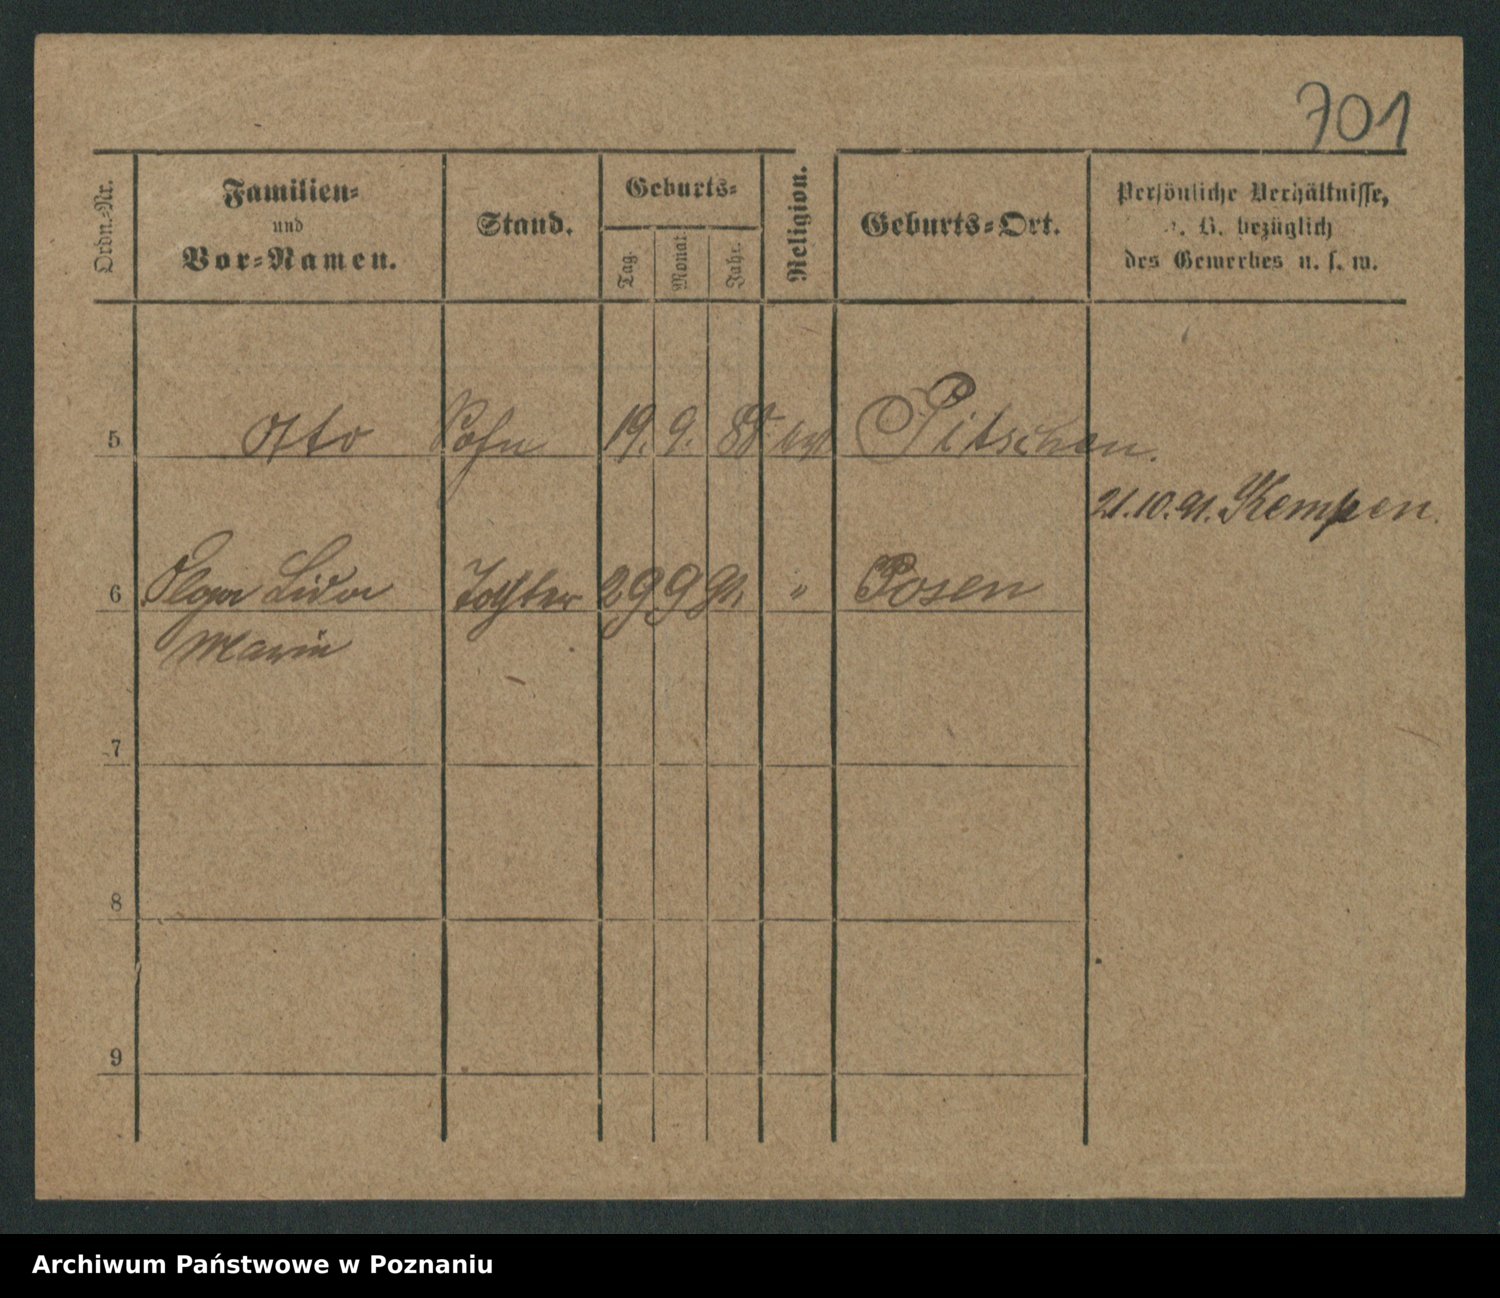 701
Ordn.-Nr.
Familien-
und
Vor-Namen.
Stand.
Geburts-
Tag.
Monat.
Jahr.
Religion.
Geburts-Ort.
Persönliche Verhältnisse,
z. B. bezüglich
des Gewerbes u. s. w.
5 Otto Sohn 19. 9. 88 Pitschen.
21.10.91. Kempen.
6 Olga Lida Tochter 29 9 91. " Posen
Marie
7
8
9
Archiwum Państwowe w Poznaniu